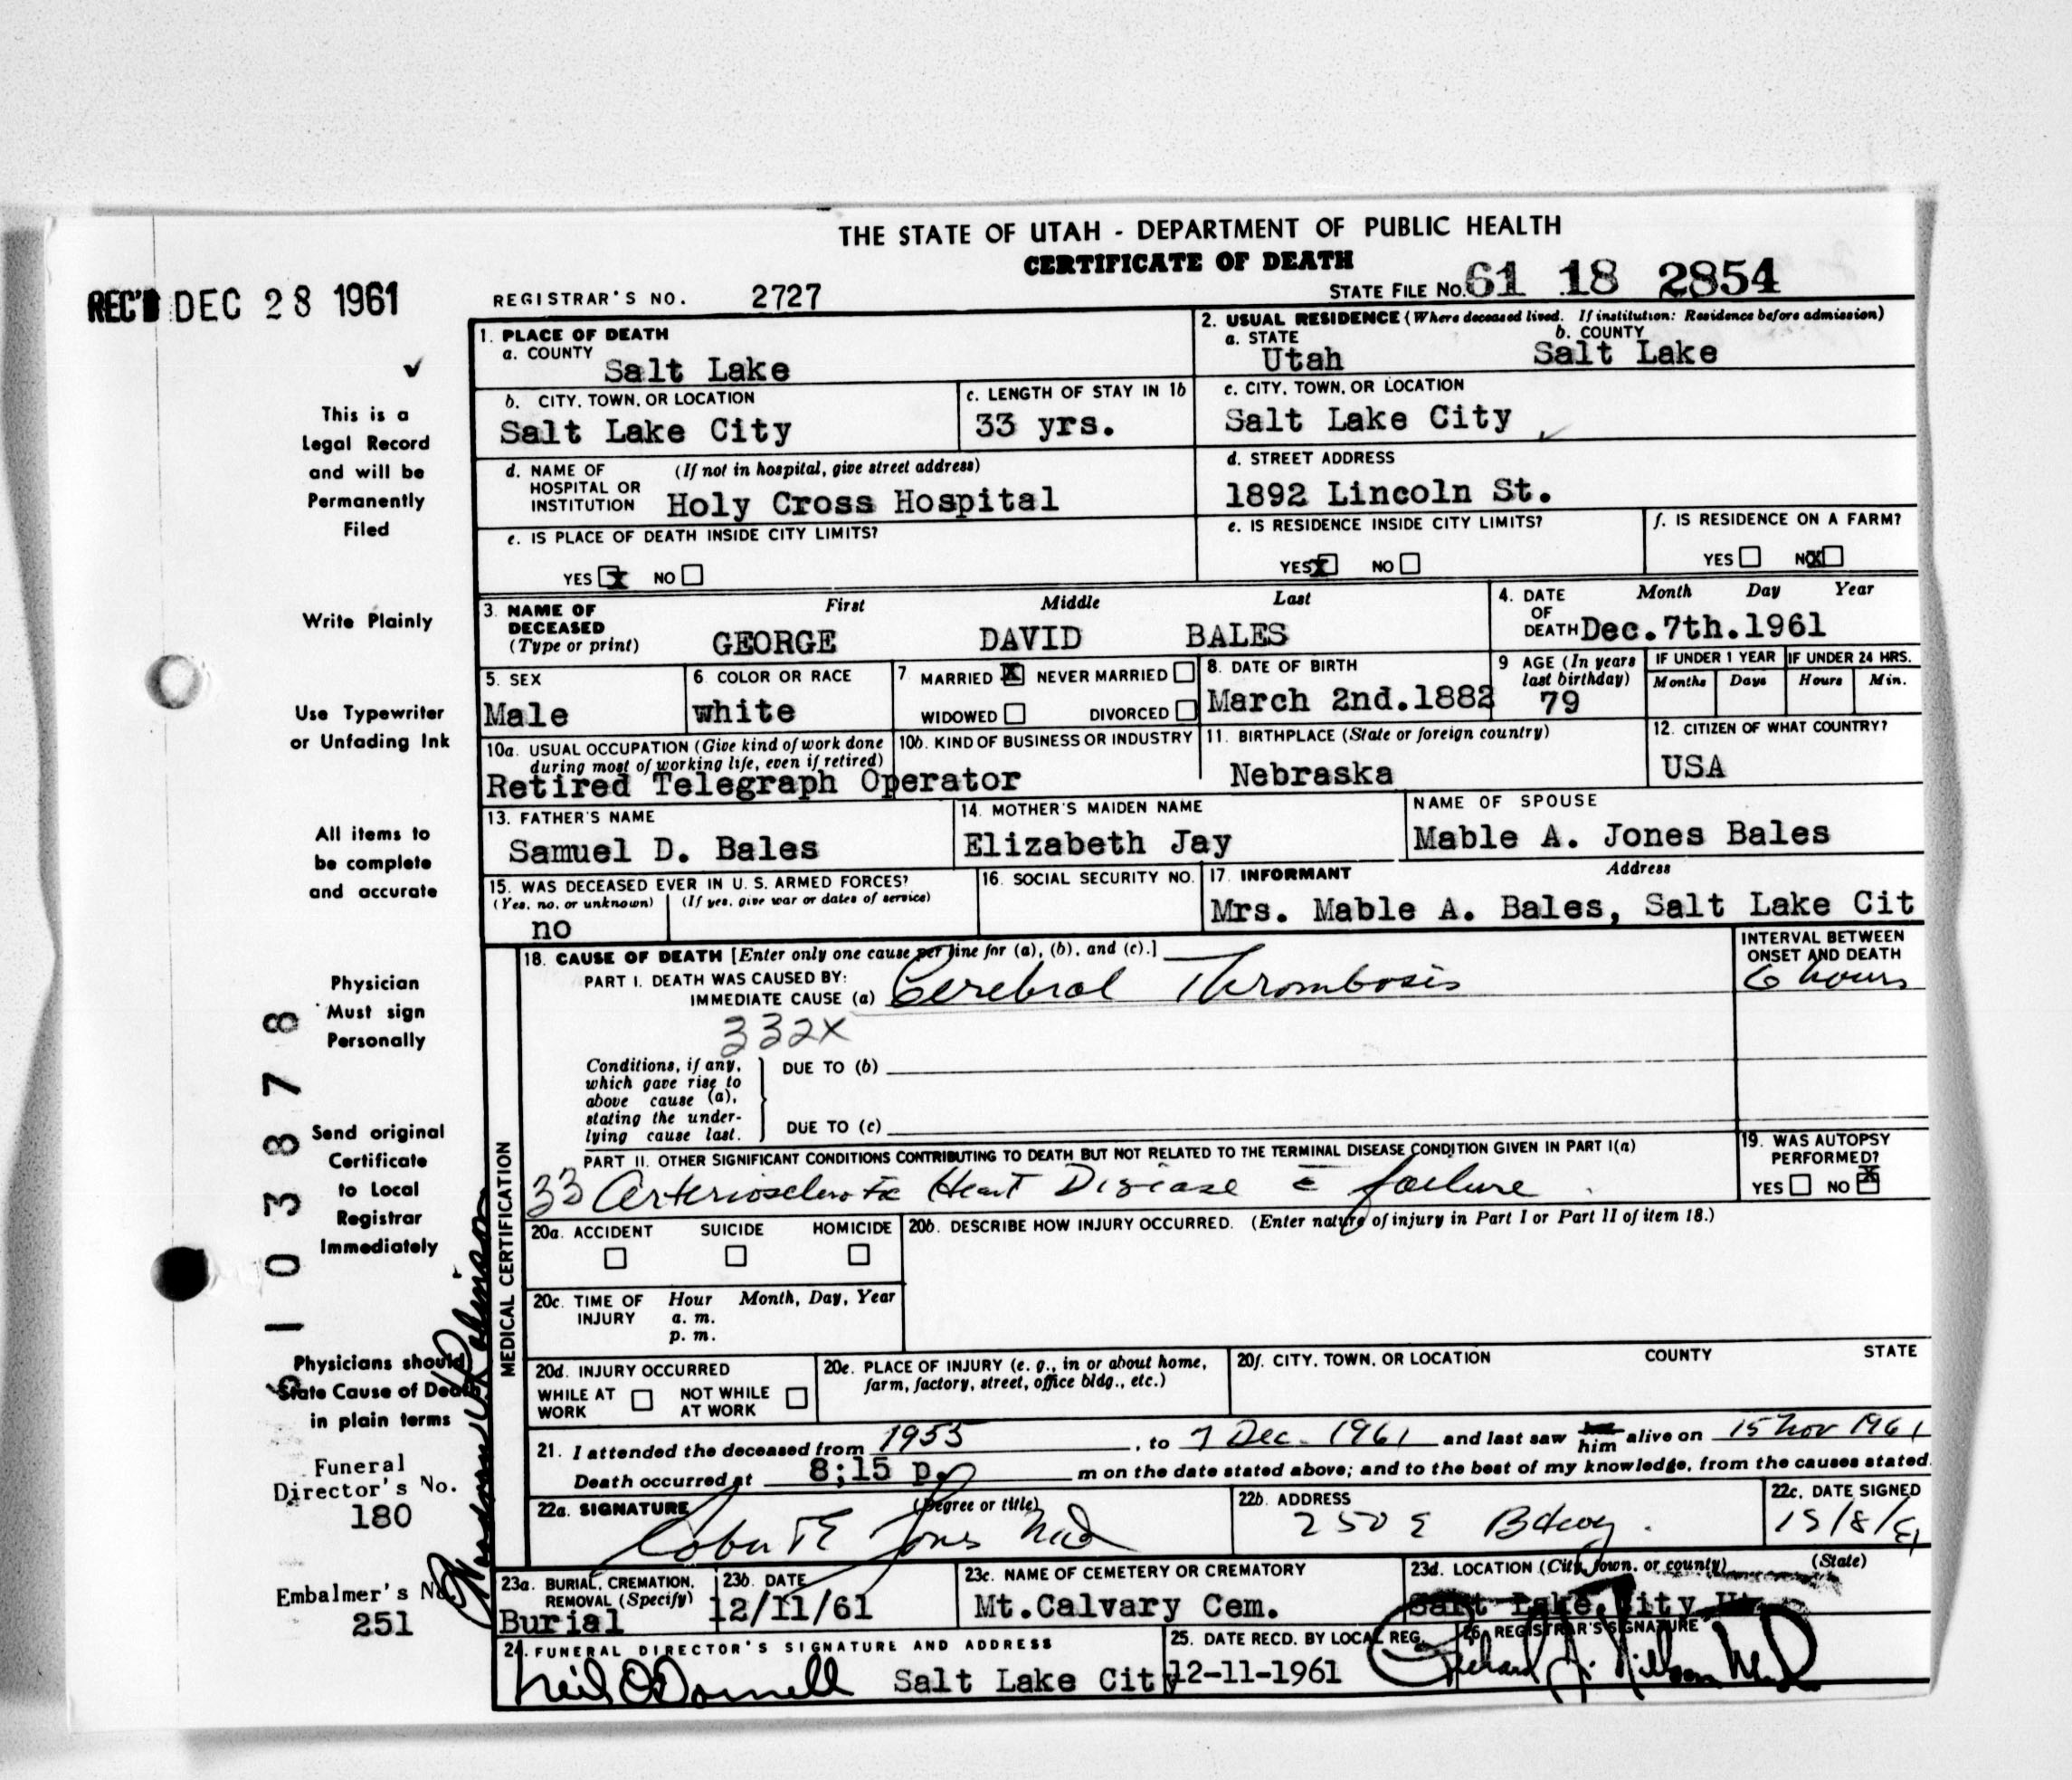 THE STATE OF UTAH - DEPARTMENT OF PUBLIC HEALTH
CERTIFICATE OF DEATH
REC'D DEC 28 1961
REGISTRAR'S NO. 2727
STATE FILE NO. 61 18 2854
This is a
Legal Record
and will be
Permanently
Filed
Write Plainly
Use Typewriter
or Unfading Ink
All items to
be complete
and accurate
Physician
Must sign
Personally
Send original
Certificate
to Local
Registrar
Immediately
Physicians should
State Cause of Death
in plain terms
Funeral
Director's No.
180
Embalmer's No.
251
1. PLACE OF DEATH
a. COUNTY
Salt Lake
2. USUAL RESIDENCE (Where deceased lived. If institution: Residence before admission)
a. STATE b. COUNTY
Utah Salt Lake
b. CITY, TOWN, OR LOCATION
Salt Lake City
c. LENGTH OF STAY IN 1b
33 yrs.
c. CITY, TOWN, OR LOCATION
Salt Lake City
d. NAME OF (If not in hospital, give street address)
HOSPITAL OR
INSTITUTION Holy Cross Hospital
d. STREET ADDRESS
1892 Lincoln St.
e. IS PLACE OF DEATH INSIDE CITY LIMITS?
YES X NO
e. IS RESIDENCE INSIDE CITY LIMITS?
YES X NO
f. IS RESIDENCE ON A FARM?
YES NO X
3. NAME OF
DECEASED
(Type or print)
First Middle Last
GEORGE DAVID BALES
4. DATE Month Day Year
OF
DEATH Dec.7th.1961
5. SEX
Male
6. COLOR OR RACE
white
7. MARRIED X NEVER MARRIED
WIDOWED DIVORCED
8. DATE OF BIRTH
March 2nd.1882
9 AGE (In years
last birthday)
79
IF UNDER 1 YEAR IF UNDER 24 HRS.
Months Days Hours Min.
10a. USUAL OCCUPATION (Give kind of work done
during most of working life, even if retired)
Retired Telegraph Operator
10b. KIND OF BUSINESS OR INDUSTRY
11. BIRTHPLACE (State or foreign country)
Nebraska
12. CITIZEN OF WHAT COUNTRY?
USA
13. FATHER'S NAME
Samuel D. Bales
14. MOTHER'S MAIDEN NAME
Elizabeth Jay
NAME OF SPOUSE
Mable A. Jones Bales
15. WAS DECEASED EVER IN U. S. ARMED FORCES?
(Yes, no, or unknown) (If yes, give war or dates of service)
no
16. SOCIAL SECURITY NO.
17. INFORMANT Address
Mrs. Mable A. Bales, Salt Lake Cit
MEDICAL CERTIFICATION
18. CAUSE OF DEATH [Enter only one cause per line for (a), (b), and (c).]
PART I. DEATH WAS CAUSED BY:
IMMEDIATE CAUSE (a) Cerebral Thrombosis
INTERVAL BETWEEN
ONSET AND DEATH
6 hours
332X
Conditions, if any,
which gave rise to
above cause (a),
stating the under-
lying cause last.
DUE TO (b)
DUE TO (c)
PART II. OTHER SIGNIFICANT CONDITIONS CONTRIBUTING TO DEATH BUT NOT RELATED TO THE TERMINAL DISEASE CONDITION GIVEN IN PART I(a)
33 Arteriosclerotic Heart Disease c̄ failure
19. WAS AUTOPSY
PERFORMED?
YES NO X
20a. ACCIDENT SUICIDE HOMICIDE
20b. DESCRIBE HOW INJURY OCCURRED. (Enter nature of injury in Part I or Part II of item 18.)
20c. TIME OF Hour Month, Day, Year
INJURY a. m.
p. m.
20d. INJURY OCCURRED
WHILE AT NOT WHILE
WORK AT WORK
20e. PLACE OF INJURY (e. g., in or about home,
farm, factory, street, office bldg., etc.)
20f. CITY, TOWN, OR LOCATION COUNTY STATE
21. I attended the deceased from 1955, to 7 Dec. 1961 and last saw him alive on 15 Nov 1961
Death occurred at 8;15 p. m on the date stated above; and to the best of my knowledge, from the causes stated.
22a. SIGNATURE (Degree or title)
Robert E Jones MD
22b. ADDRESS
250 E Bdwy.
22c. DATE SIGNED
23a. BURIAL, CREMATION,
REMOVAL (Specify)
Burial
23b. DATE
12/11/61
23c. NAME OF CEMETERY OR CREMATORY
Mt.Calvary Cem.
23d. LOCATION (City, town, or county) (State)
Salt Lake City Ut.
24. FUNERAL DIRECTOR'S SIGNATURE AND ADDRESS
Neil O'Donnell Salt Lake City
25. DATE RECD. BY LOCAL REG.
12-11-1961
26. REGISTRAR'S SIGNATURE